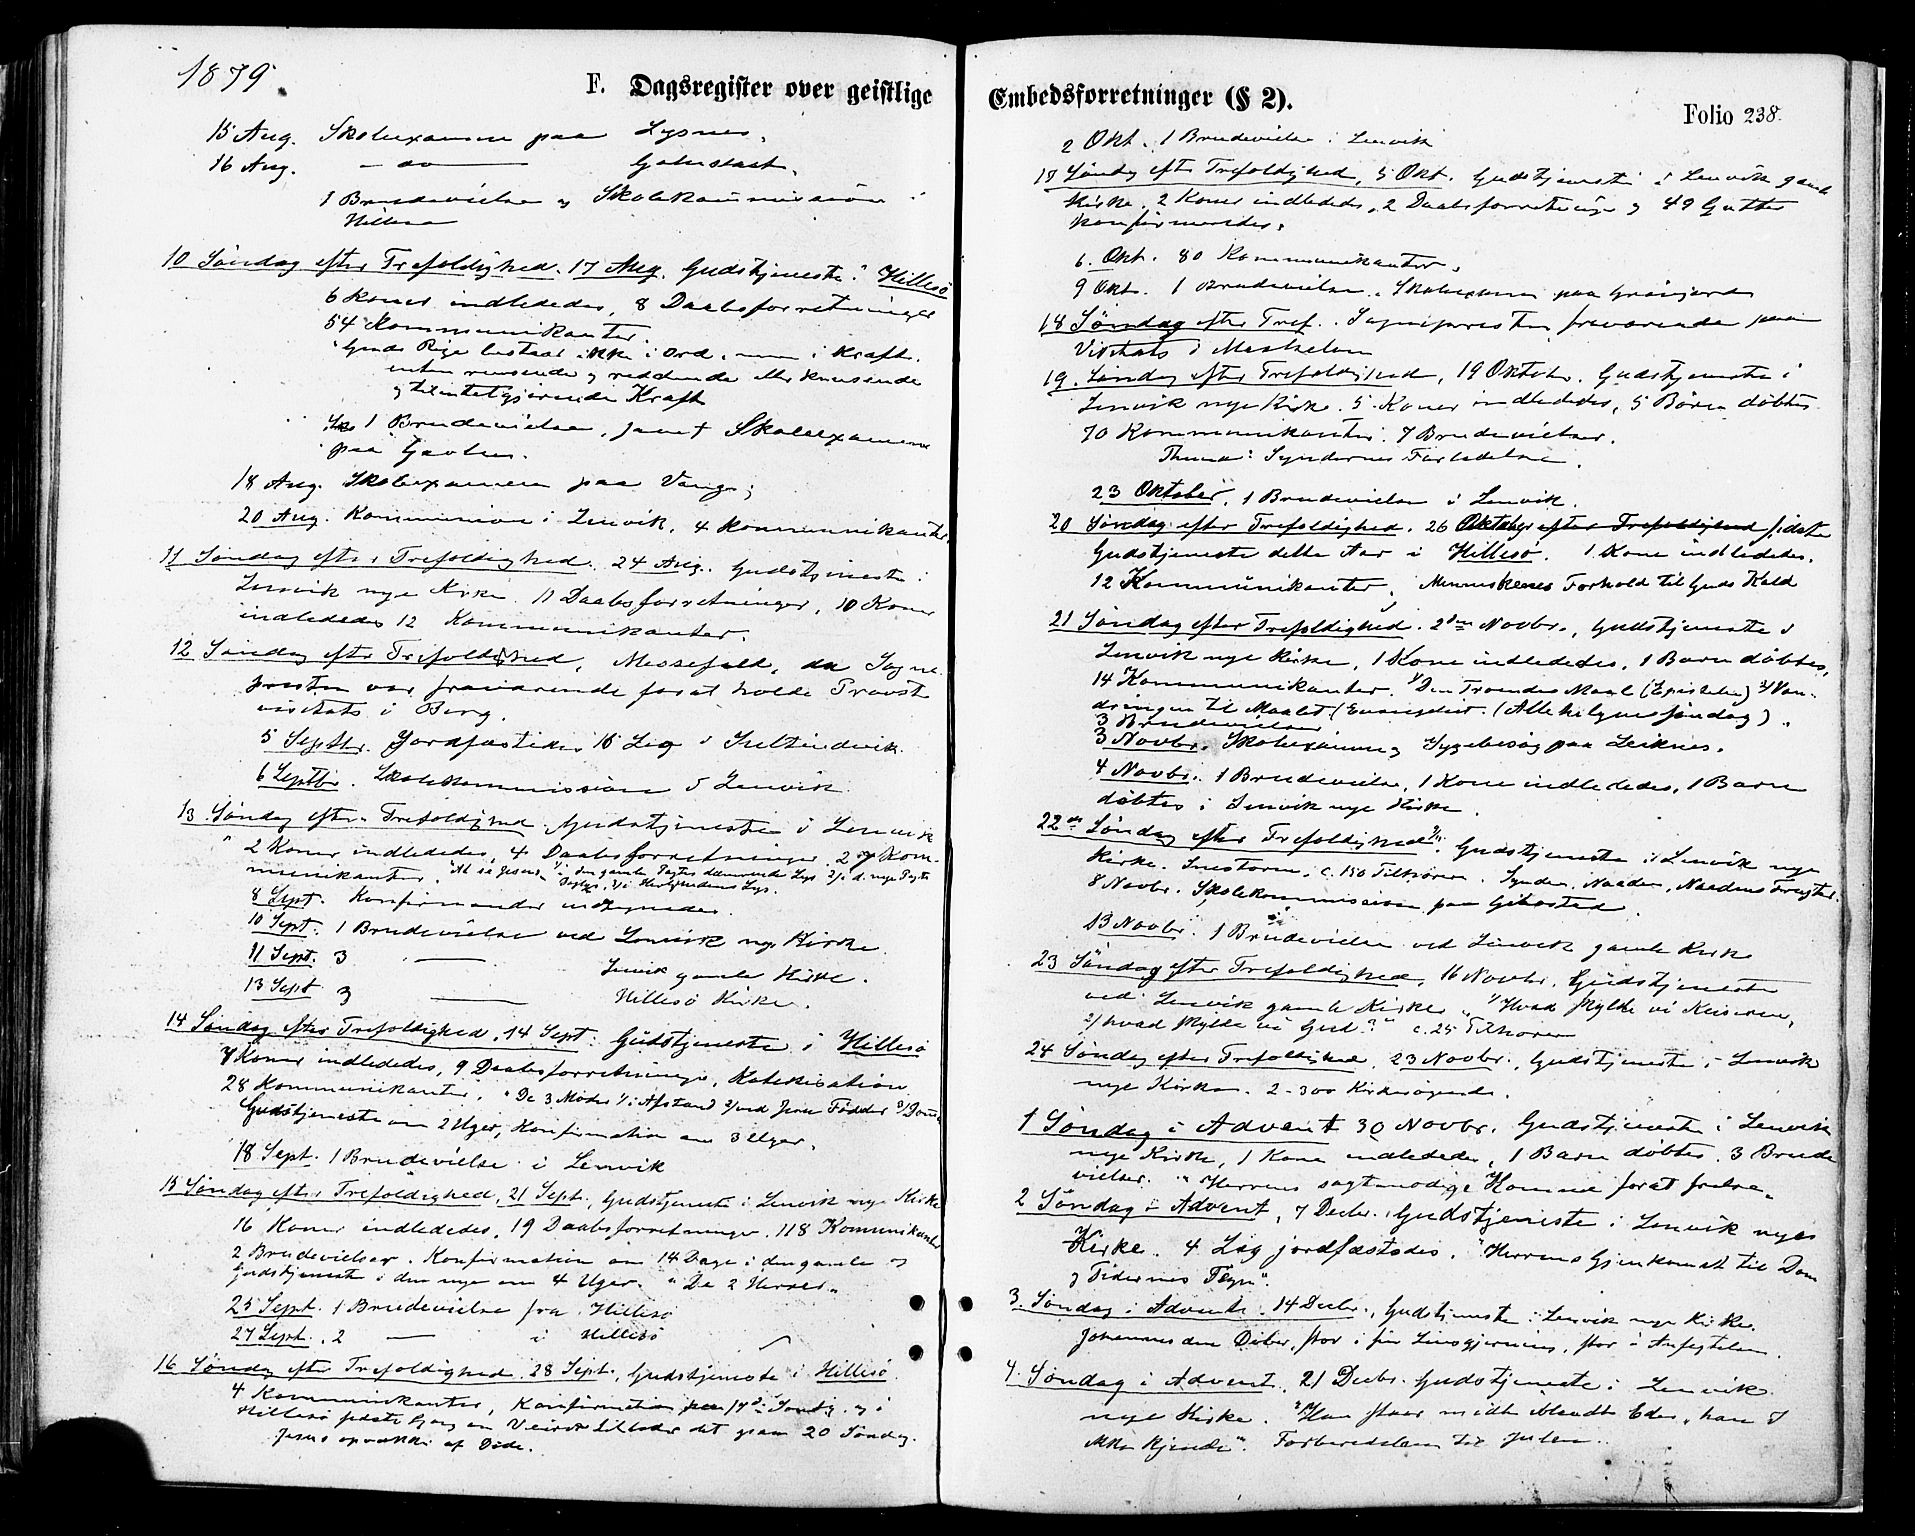 1879.
F. Dagsregister over geistlige
15 Aug. Skoleexamen paa Lysnes.
16 Aug. — do — Gebostad.
1 Brudevielse og Skolekommission i
Hillesø
10 Søndag efter Trefoldighed. 17 Aug. Gudstjeneste i Hillesø
6 Koner indlededes, 8 Daabsforretninger
54 Kommunikanter.
"Guds Rige bestaar ikke i Ord, men i Kraft.
enten rensende og reddende eller knusende
og tilintetgjørende Kraft
1 Brudevielse, samt Skoleexamen
paa
18 Aug. Skoleexamen paa Vang.
20 Aug. Kommunion i Lenvik. 4 Kommunikanter.
11 Søndag efter Trefoldighed. 24 Aug. Gudstjeneste i
Lenvik nye Kirke. 11 Daabsforretninger, 10 Koner
indlededes 12 Kommunikanter.
12 Søndag efter Trefoldighed, Messefald, da Sogne
presten var fraværende forat holde Provst
visitats i Berg.
5 Septbr. Jordfæstedes 16 Lig i
6 Septbr. Skolekommission i Lenvik.
13 Søndag efter Trefoldighed. Gudstjeneste i Lenvik
2 Koner indlededes, 4 Daabsforretninger, 27 Kom-
munikanter. "At se Jesus" 1/ i den gamle Pagts dæmrende Lys 2/ i d. nye Pagts
Dagslys, 3/ i Herlighedens Lys.
8 Sept. Konfirmander indtegnedes.
10 Sept. 1 Brudevielse ved Lenvik nye Kirke.
11 Sept. 3 — Lenvik gamle Kirke.
13 Sept 3 — Hillesö Kirke.
14 Søndag efter Trefoldighed, 14 Sept. Gudstjeneste i Hillesø
7 Koner indlededes, 9 Daabsforretninger, Katekisation
28 Kommunikanter. "De 3 Møder 1/ i Afstand 2/ ved Jesu Fødder 3/
Gudstjeneste om 2 Uger, Konfirmation om 3 Uger.
18 Sept. 1 Brudevielse i Lenvik
15 Søndag efter Trefoldighed, 21 Sept., Gudstjeneste i Lenvik nye Kirke
16 Koner indlededes, 19 Daabsforretninger. 118 Kommunikanter
2 Brudevielser. Konfirmation om 14 Dage i den gamle og
Gudstjeneste i den nye om 4 Uger. "De 2 Herrer"
25 Sept. 1 Brudevielse fra Hillesø
27 Sept. 2 — i Hillesö
16 Søndag efter Trefoldighed 28 Sept., Gudstjeneste i Hillesø.
4 Kommunikanter, Konfirmation 17de Søndag og i
Hillesø sidste Gang om Veiret tillader det paa 20 Søndag.
Jesus opvækker af Døde.
Embedsforretninger (§ 2).
Folio 238.
2 Okt. 1 Brudevielse i Lenvik
17 Søndag efter Trefoldighed, 5 Okt. Gudstjeneste i Lenvik gamle
Kirke. 2 Koner indlededes, 2 Daabsforretninger og 49 Gutter
konfirmeredes.
6. Okt. 80 Kommunikanter.
9 Okt. 1 Brudevielse. Skoleexamen paa
18 Søndag efter Tref. Sognepresten fraværende paa
Visitats i
19. Søndag efter Trefoldighed, 19 Oktober. Gudstjeneste i
Lenvik nye Kirke. 5 Koner indlededes, 5 Børn døbtes
70 Kommunikanter. 7 Brudevielser.
Thema: Syndernes Forladelse.
23 Oktober. 1 Brudevielse i Lenvik.
20 Søndag efter Trefoldighed. 26 Oktober efter Trefoldighed sidste
Gudstjeneste dette Aar i Hillesø. 1 Kone indlededes.
12 Kommunikanter, Menneskenes Forhold til Guds Kald
21 Søndag efter Trefoldighed. 2den Novbr., Gudstjeneste i
Lenvik nye Kirke, 1 Kone indlededes, 1 Barn døbtes,
14 Kommunikanter. 1/ Den Troendes Maal (Epistelen) 2/ Van-
dringen til Maalet (Evangeliet. (Allehelgenssøndag).
3 Brudevielser
3 Novbr. Skoleexamen og Sygebesøg paa Leiknes.
4 Novbr. 1 Brudevielse, 1 Kone indlededes, 1 Barn
døbtes i Lenvik nye Kirke.
22de Søndag efter Trefoldighed Gudstjeneste i Lenvik nye
Kirke. Snestorm, c. 150 Tilhörere. Synden, Naaden, Naadens Frugter.
8 Novbr. Skolekommission paa Gibostad.
13 Novbr. 1 Brudevielse ved Lenvik gamle Kirke
23 Søndag efter Trefoldighed, 16 Novbr. Gudstjeneste
ved Lenvik gamle Kirke. "1/ Hvad skylde vi Keiseren,
2/ hvad skylde vi Gud?" c. 25 Tilhörere
24 Søndag efter Trefoldighed, 23 Novbr. Gudstjeneste i Lenvik
nye Kirke. 2-300 Kirkesøgende.
1 Søndag i Advent 30 Novbr. Gudstjeneste i Lenvik
nye Kirke, 1 Kone indlededes, 1 Barn döbtes. 3 Brude
vielser. "Herrens sagtmodige Komme forat frelse"
2 Søndag i Advent, 7 Decbr. Gudstjeneste i Lenvik nye
Kirke. 4 Lig jordfæstedes. "Herrens Gjenkomst til Dom
og Tidernes Tegn".
3. Søndag i Advent. 14 Decbr., Gudstjeneste i Lenvik nye Kirke.
Johannes den Døber, stor i sin Livsgjerning, stor i Anfægtelsen.
4. Søndag i Advent. 21 Decbr. Gudstjeneste i Lenvik
nye Kirke. "Han staar midt iblandt Eder, ham I
ikke kjende". Forberedelsen til Julen.